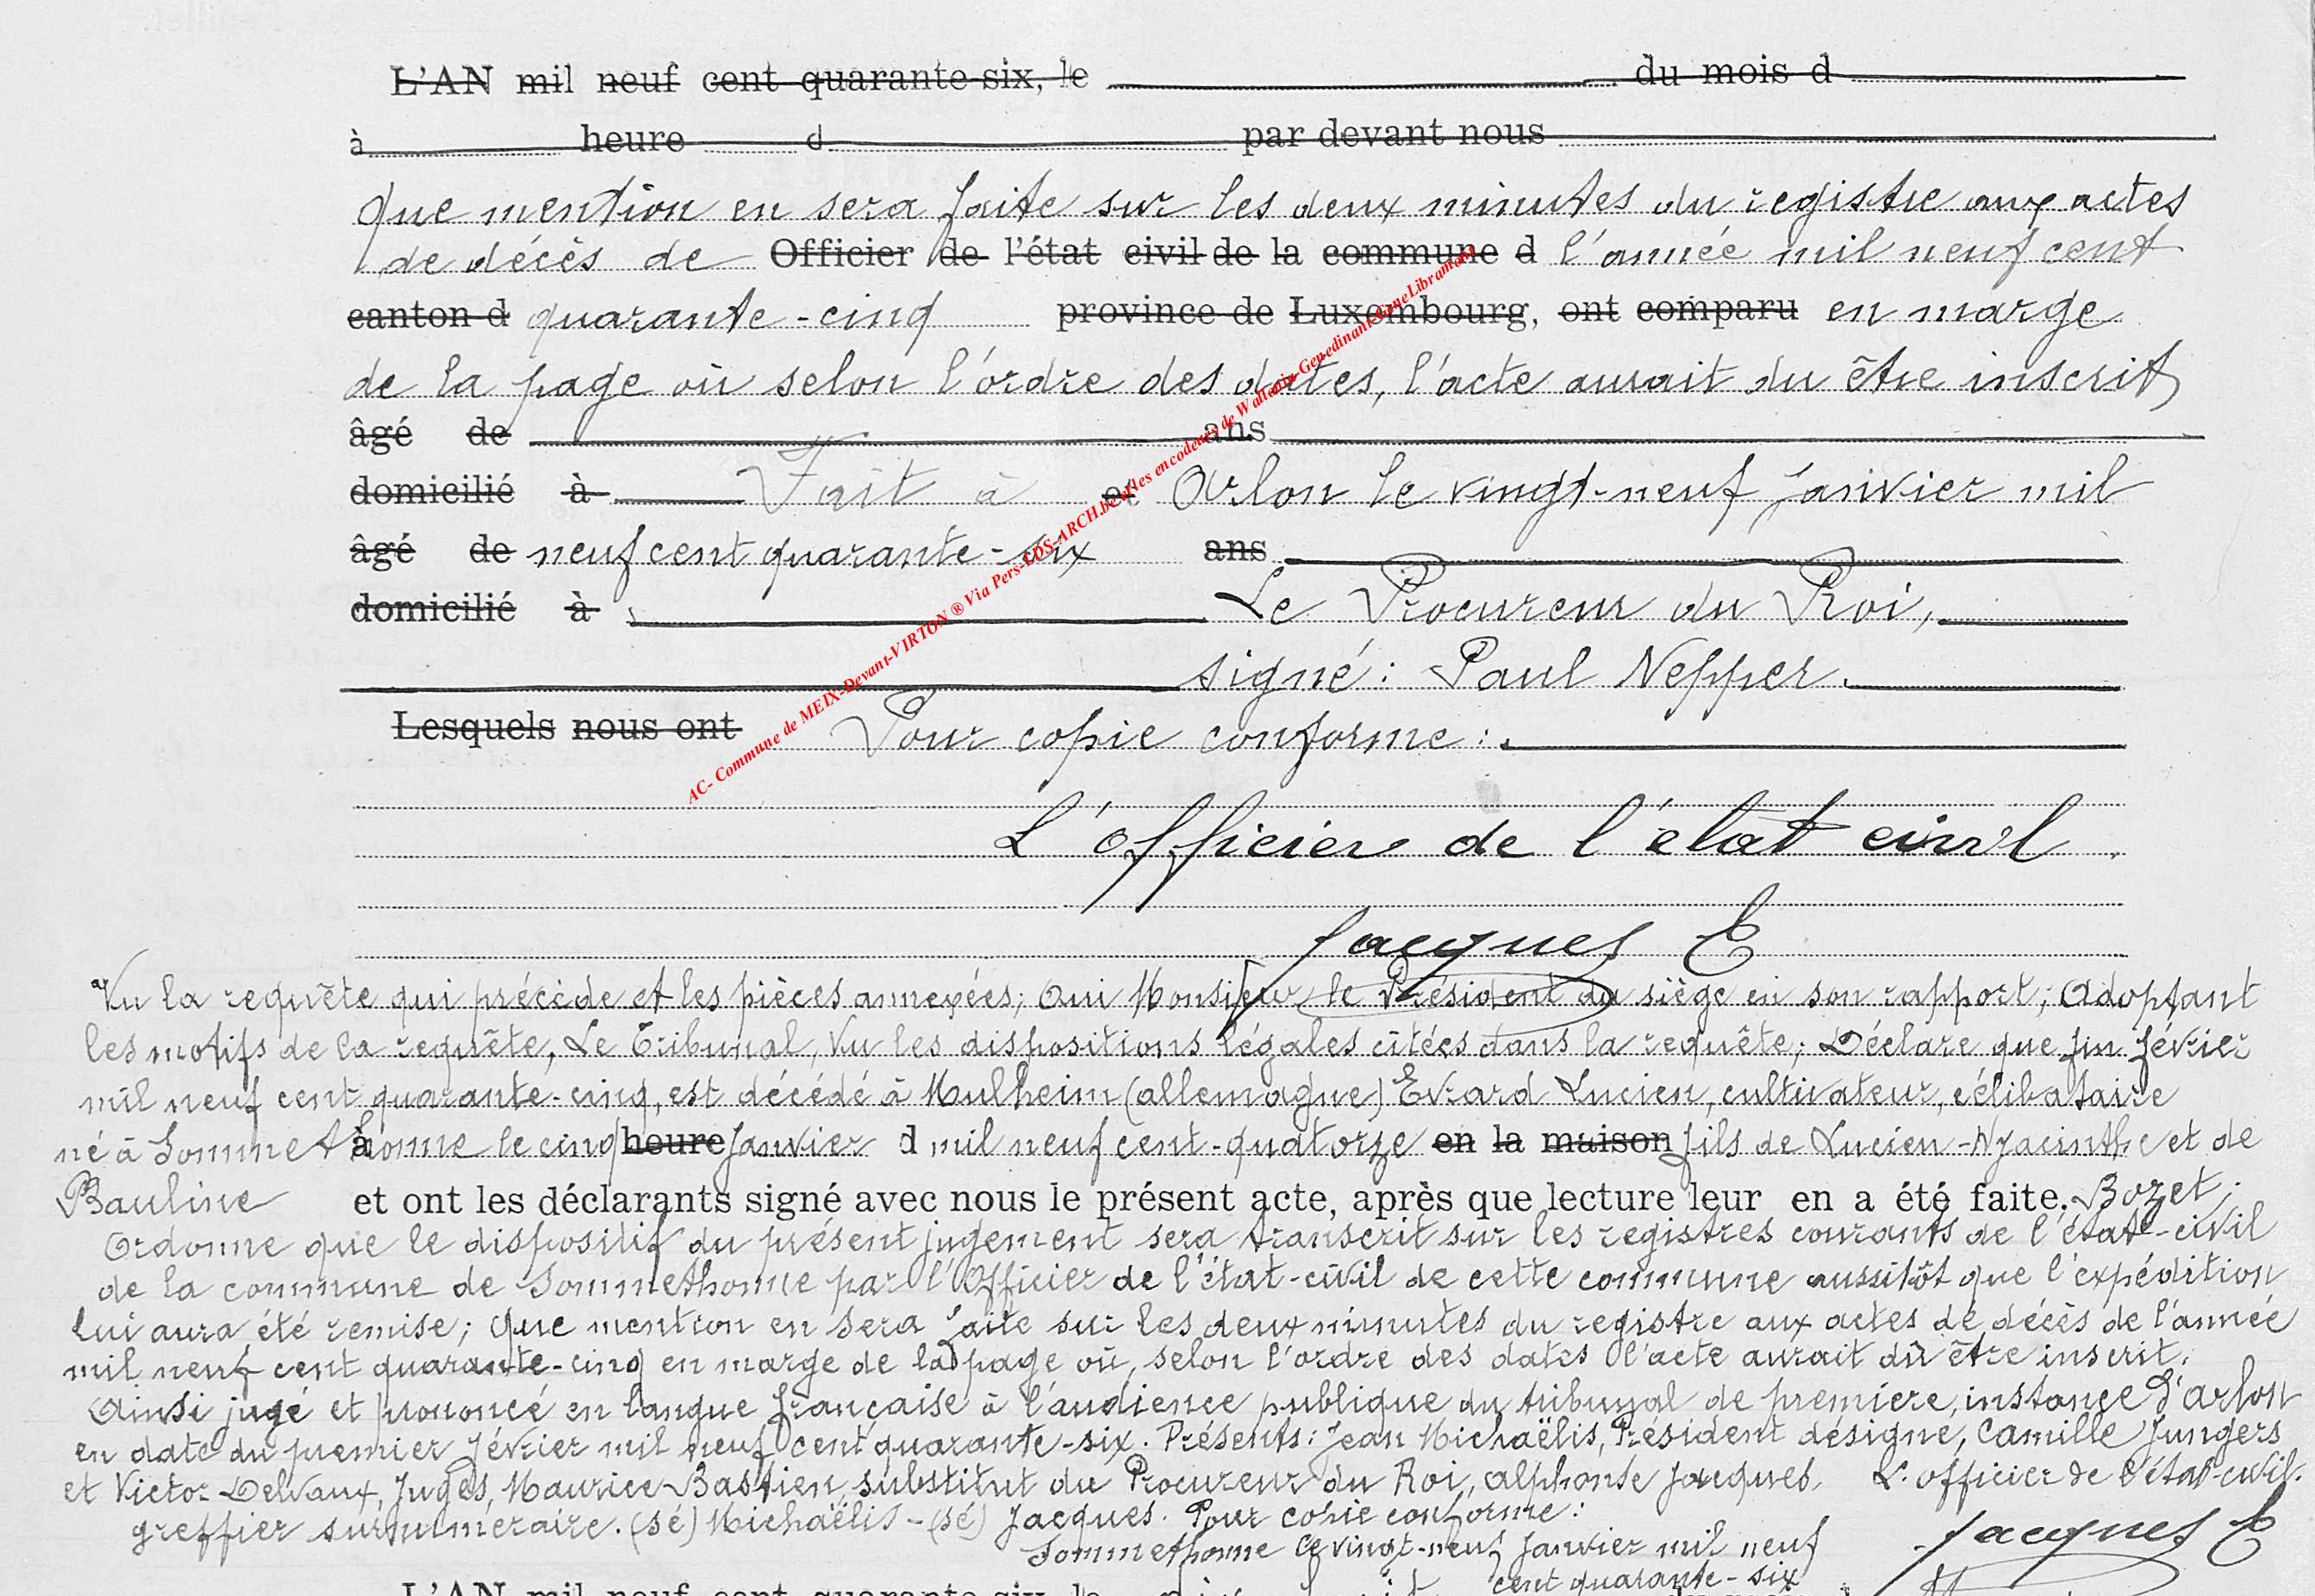 L'AN mil neuf cent quarante-six, le du mois d
à heure d par devant nous
Que mention en sera faite sur les deux minutes du registre aux actes
de décès de Officier de l'état civil de la commune d l'année mil neuf cent
canton d quarante-cinq province de Luxembourg, ont comparu en marge
de la page où selon l'ordre des dates, l'acte aurait du être inscrit
âgé de ans
domicilié à Fait à et Arlon le vingt-neuf janvier mil
âgé de neuf cent quarante-six ans
domicilié à Le Procureur du Roi,
signé: Paul Nepper.
Lesquels nous ont Pour copie conforme:
AC- Commune de MEIX-Devant-VIRTON ® Via Pers-LDS-ARCH.be et les encodeurs de Wallonia-Genedinant-GeneLibramont
L'officier de l'état civil
Jacques E
Vu la requête qui précède et les pièces annexées; Oui Monsieur le Président du siège en son rapport; Adoptant
les motifs de la requête, Le Tribunal, Vu les dispositions légales citées dans la requête; Déclare que fin février
mil neuf cent quarante-cinq, est décédé à Mulheim (allemagne) Evrard Lucien, cultivateur, célibataire
né à Sommethonne le cinq à heure janvier d mil neuf cent-quatorze en la maison fils de Lucien-Hyacinthe et de
Pauline et ont les déclarants signé avec nous le présent acte, après que lecture leur en a été faite. Bozet;
Ordonne que le dispositif du présent jugement sera transcrit sur les registres courants de l'état-civil
de la commune de Sommethonne par l'Officier de l'état-civil de cette commune aussitôt que l'expédition
lui aura été remise; que mention en sera faite sur les deux minutes du registre aux actes de décès de l'année
mil neuf cent quarante-cinq en marge de la page où, selon l'ordre des dates l'acte aurait dû être inscrit.
Ainsi jugé et prononcé en langue française à l'audience publique du tribunal de première instance d'arlon
en date du premier février mil neuf cent quarante-six. Présents: Jean Michaëlis, Président désigné, Camille Jungers
et Victor Delvaux, Juges, Maurice Bastien, substitut du Procureur du Roi, alphonse Jacques, L'officier de l'état-civil.
greffier surnuméraire. (sé) Michaëlis - (sé) Jacques. Pour copie conforme:
Sommethonne le vingt-neuf janvier mil neuf Jacques E
cent quarante-six
L'AN mil neuf cent quarante-six le